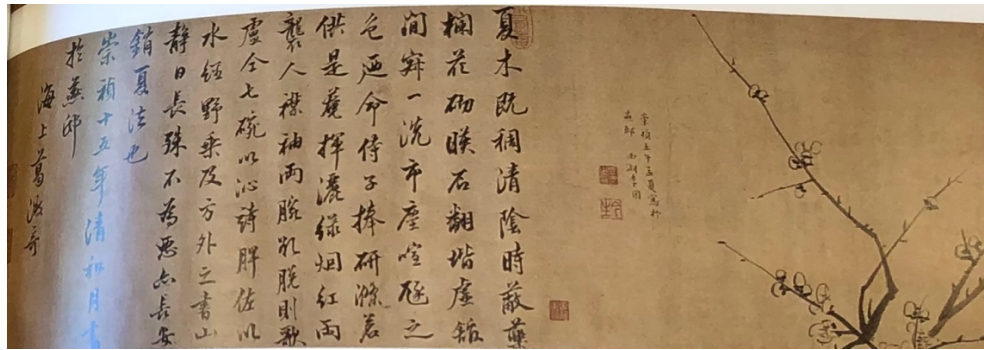 崇禎壬午孟夏寫於
燕邸
夏木既稠清陰時蔽藥
欄花砌睽石翻堦虛舘
閒窗一洗市塵喧砭之
色廼命侍子捧研滌茗
供是蕤揮灑綠烟紅雨
襲人襟袖兩腕乳脫則歌
盧仝七碗以沁詩脾佐以
水經野乘及方外之書山
靜日長殊不為惡亦長安
銷夏法也
崇禎十五年清和月書
於燕邸
海上葛